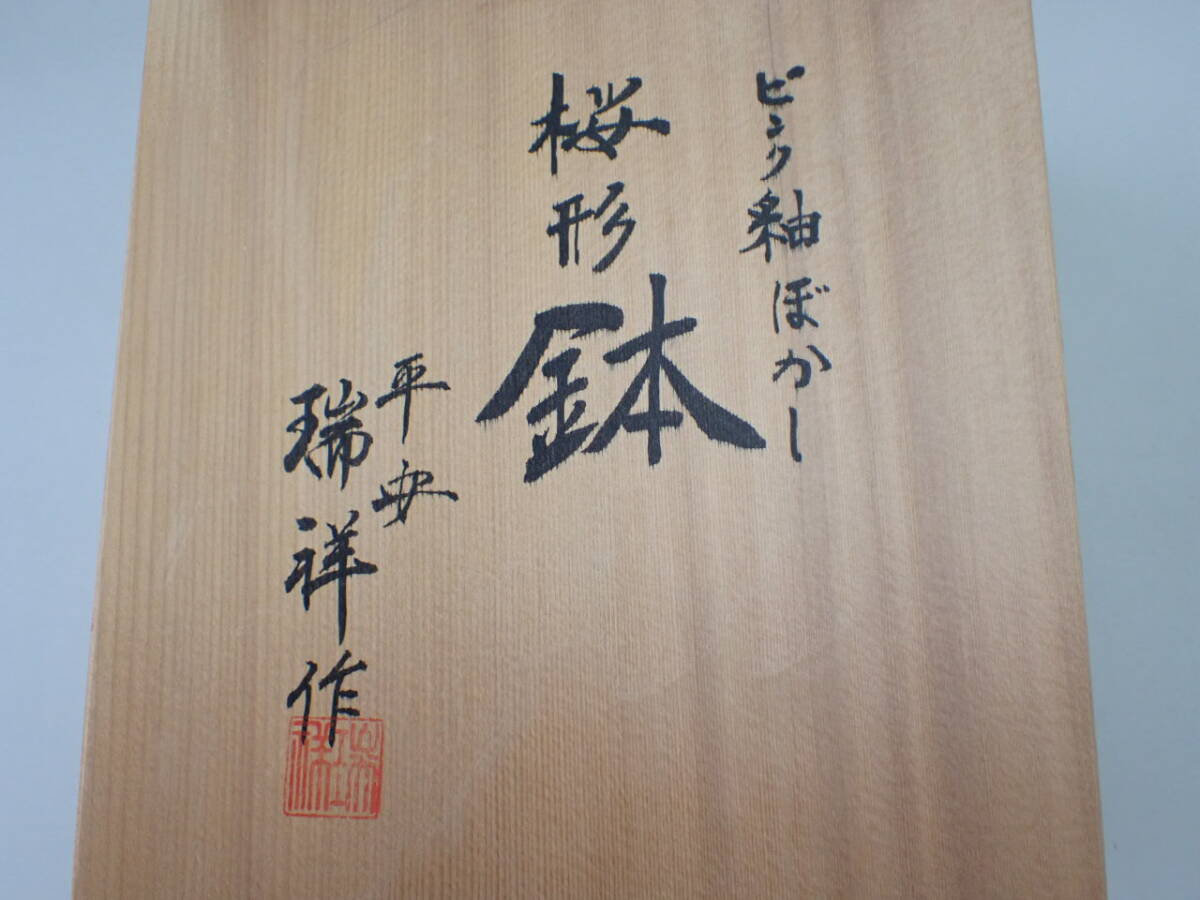 ピンク釉ぼかし
桜形鉢
平安
瑞祥作
瑞祥